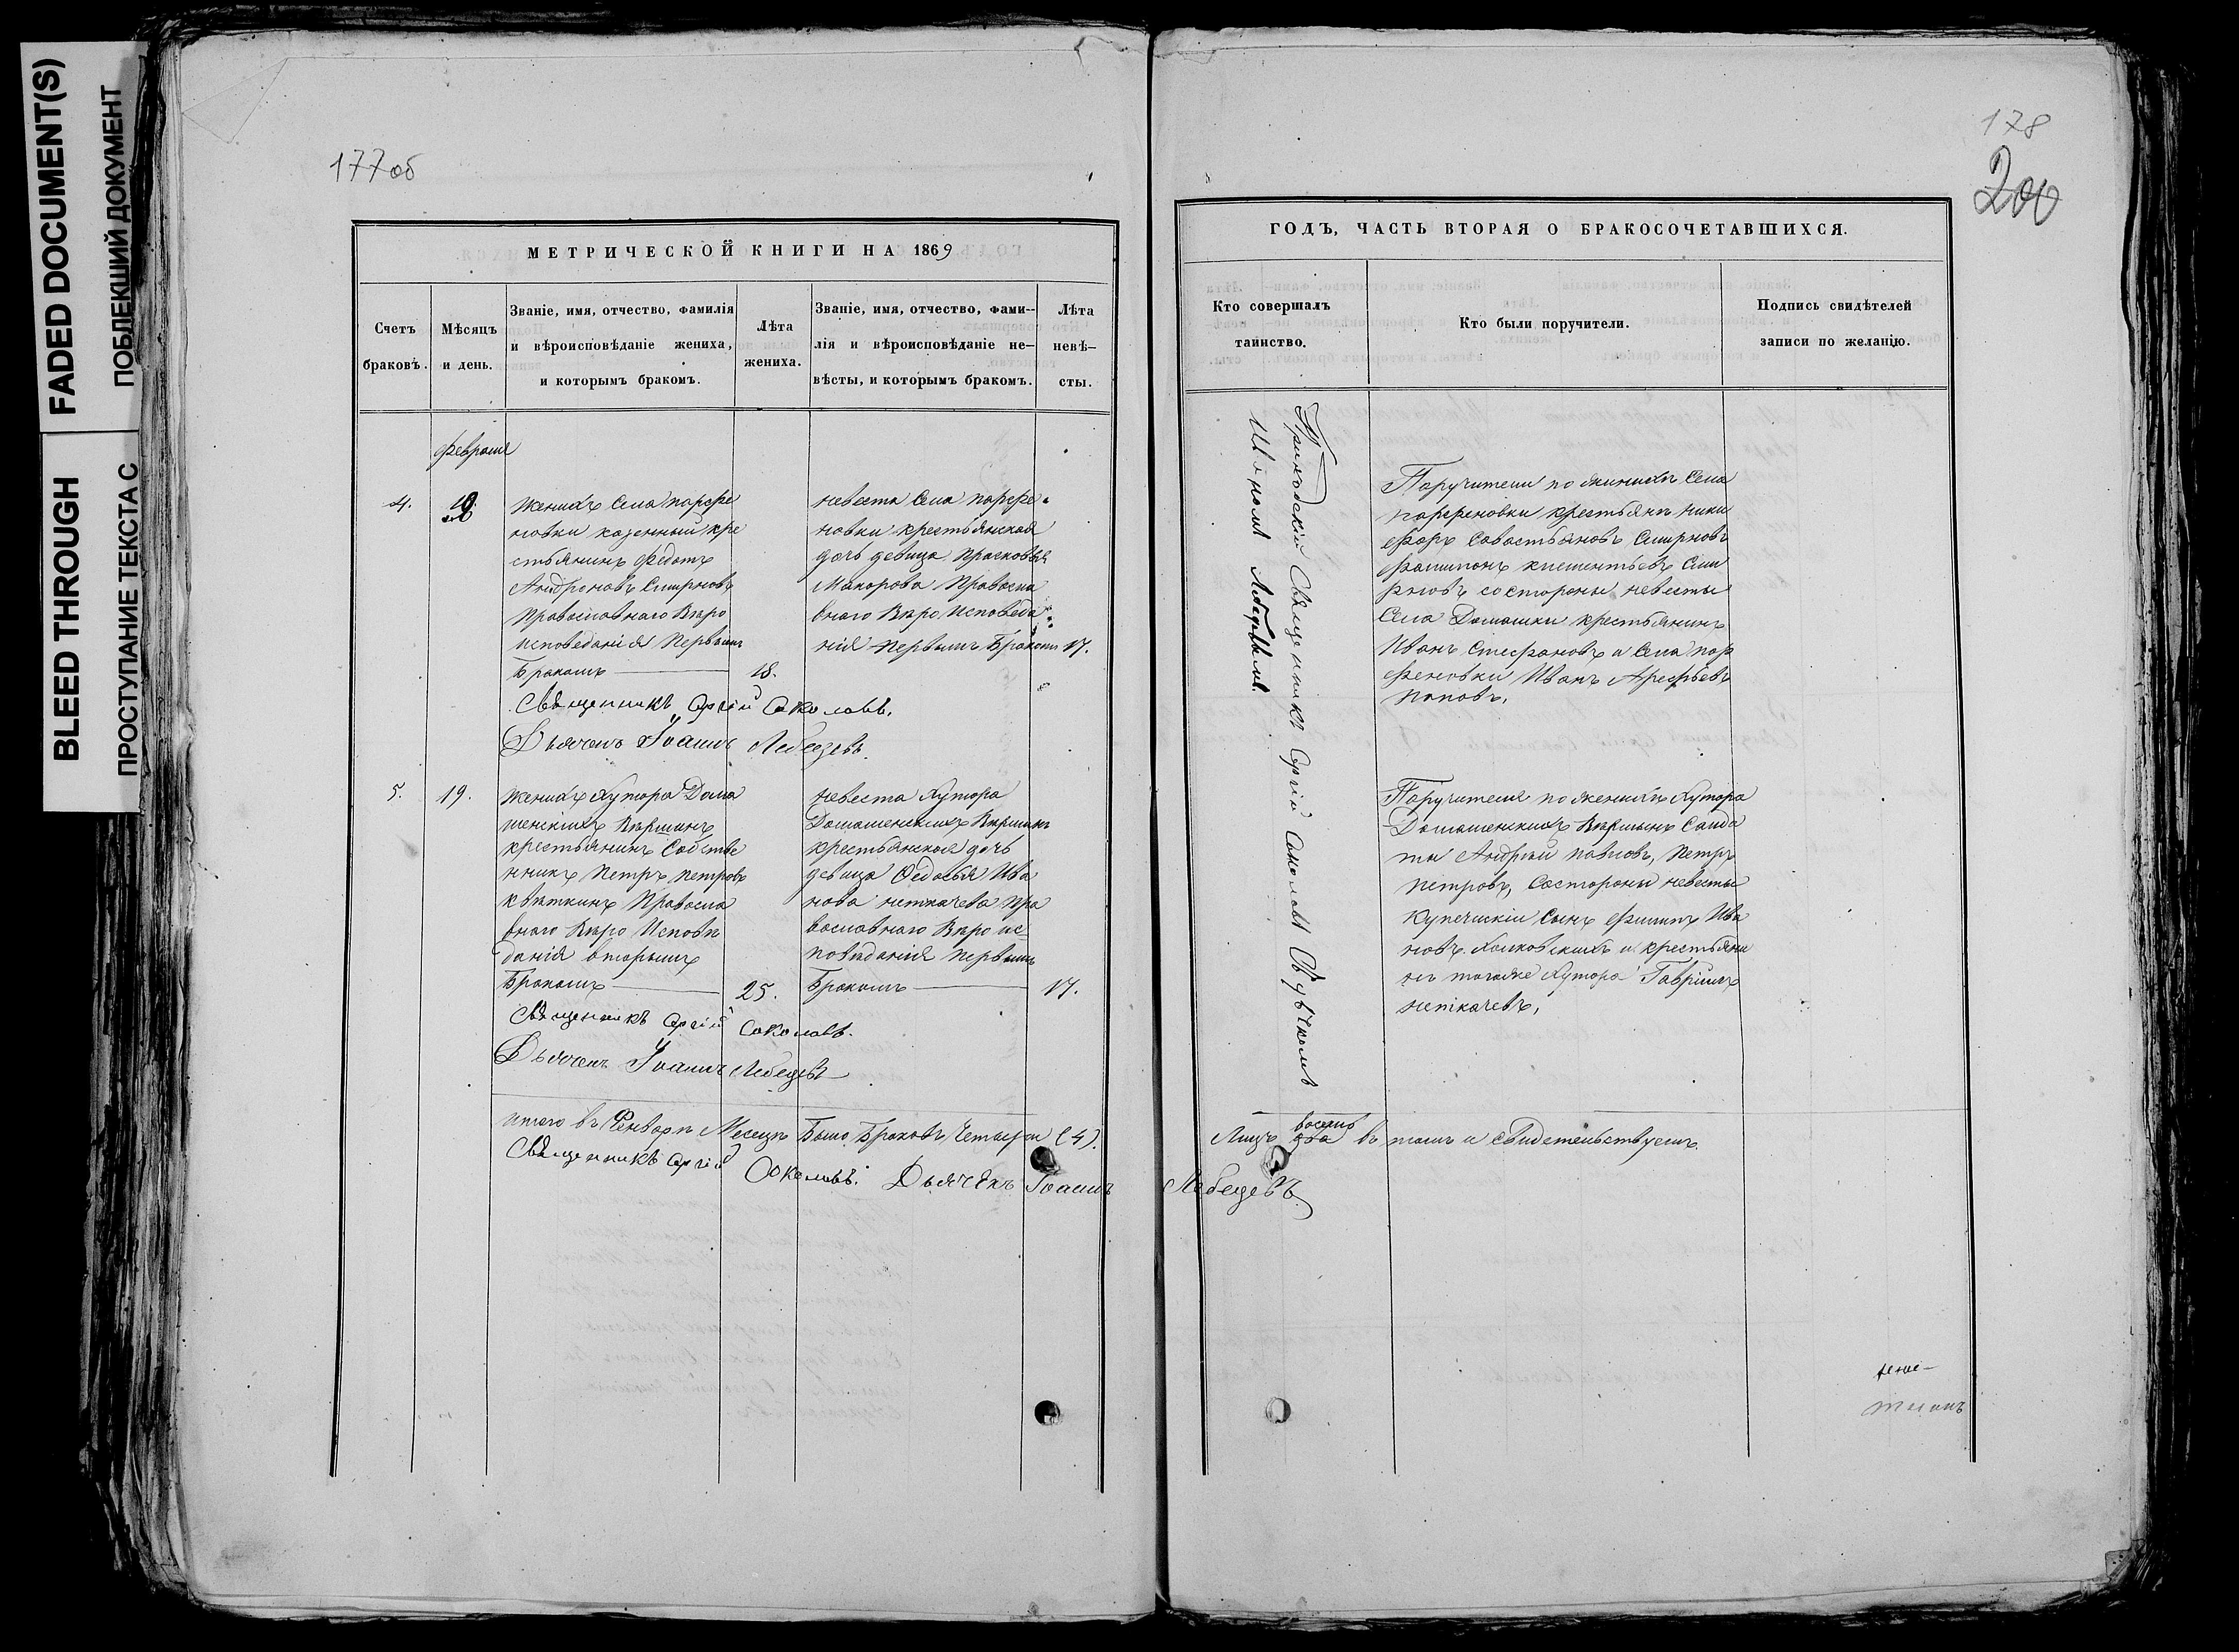 FADED DOCUMENT(S)
ПОБЛЕКШИЙ ДОКУМЕНТ
BLEED THROUGH
ПРОСТУПАНИЕ ТЕКСТА С
177об
МЕТРИЧЕСКОЙ КНИГИ НА 1869
Счетъ браковъ.
Мѣсяцъ и день.
Званіе, имя, отчество, фамилія
и вѣроисповѣданіе жениха,
и которымъ бракомъ.
Лѣта
жениха.
Званіе, имя, отчество, фами--
лія и вѣроисповѣданіе не--
вѣсты, и которымъ бракомъ.
Лѣта
невѣ--
сты.
февраля
4.
Женихъ Села парфе
новки казенный кре
стьянинъ Федотъ
Андроновъ Смирновъ
Православнаго Вѣро
исповеданія Первымъ
Бракомъ
18.
невеста Села парфе
новки крестьянская
дочь девица Прасковья
Макорова Правосла
внаго Вѣро исповеда
нія первымъ Бракомъ
17.
Священникъ Сергій Соколовъ.
Дьячекъ Іоаннъ Лебедевъ.
5.
19.
Женихъ Хутора Дома
шенскихъ Вершинъ
крестьянинъ Собстве
нникъ Петръ Петровъ
Квѣткинъ Правосла
внаго Вѣро Исповѣ
данія вторымъ
Бракомъ
25.
невеста Хутора
Домашенскихъ Вершинъ
крестьянская дочь
девица Федосья Ива
нова неткачева Пра
вославнаго Вѣро ис
повѣданія Первымъ
Бракомъ
17.
Священникъ Сергій Соколовъ.
Дьячекъ Іоаннъ Лебедевъ
итого въ Месецъ Было Браковъ Четыри (4).
Священникъ Сергій Соколовъ. Дьячекъ Іоаннъ
178
200
ГОДЪ, ЧАСТЬ ВТОРАЯ О БРАКОСОЧЕТАВШИХСЯ.
Кто совершалъ
таинство.
Кто были поручители.
Подпись свидѣтелей
записи по желанію.
Приходскій Священникъ Сергій Соколовъ Съ
Лебедевымъ.
Поручители по женихѣ Села
парфеновки крестьянъ ники
форъ Савостьяновъ Смирновъ
филипонъ климентьевъ Сми
рновъ состороны невесты
Села Домашки крестьянинъ
Иванъ Стефановъ и Села пар
феновки Иванъ Арефьевъ
Поповъ.
Поручители по женихѣ Хутора
Домашенскихъ Вершинъ Салда
ты Андрѣй павловъ, Петръ
Петровъ, Состороны невесты
Купеческій Сынъ Филипъ Ива
новъ Холковскихъ и крестьяни
нъ тогоже Хутора Гавріилъ
неткачевъ.
Лицъ восемь въ томъ и Свидетельствуемъ.
Лебедевъ.